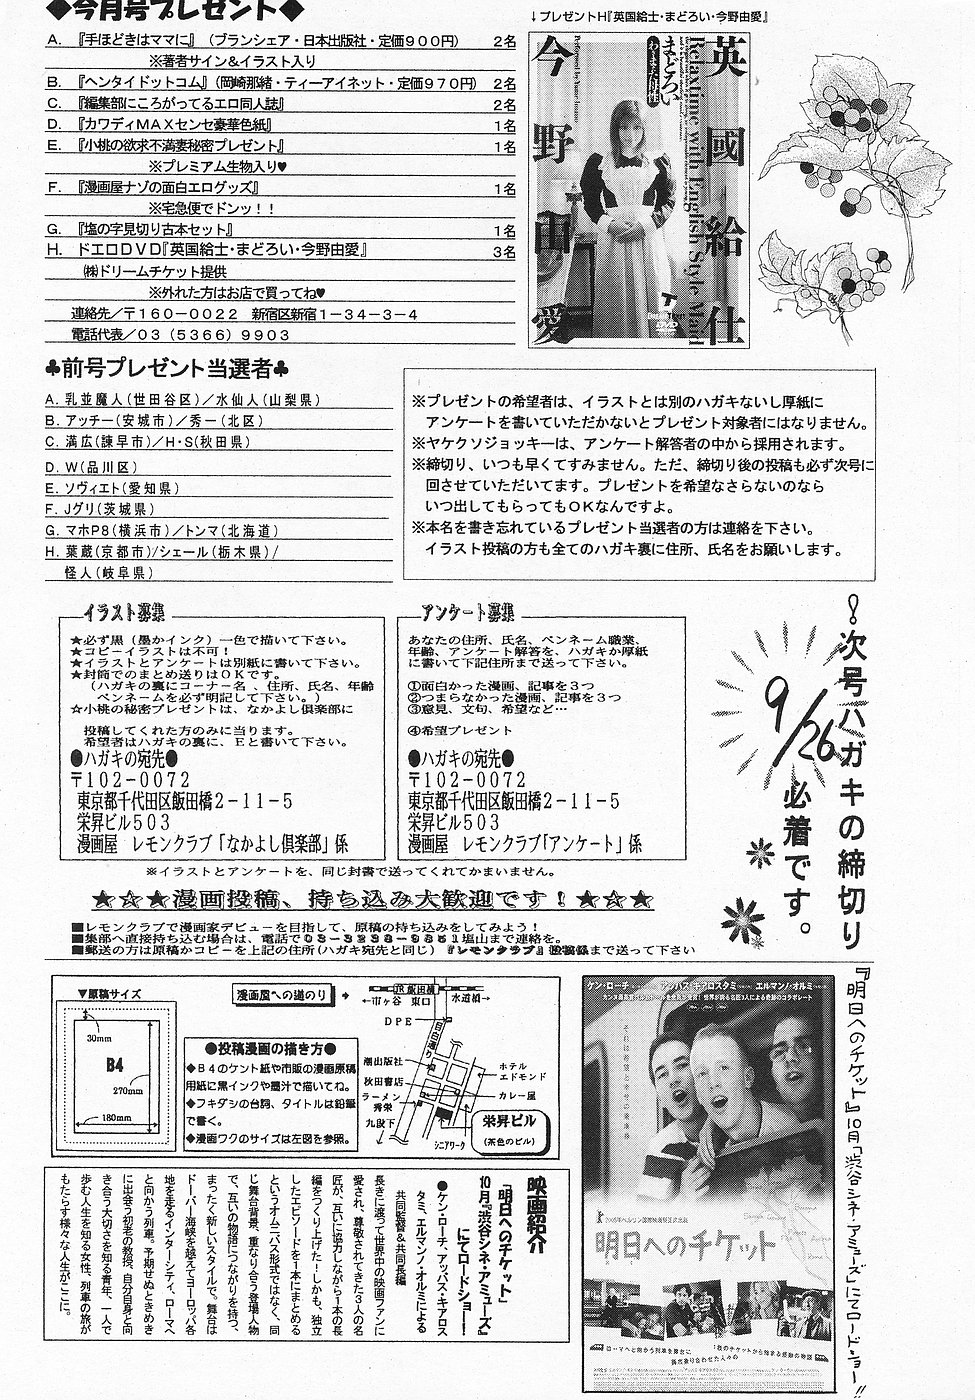 ◆今月号プレゼント◆
A. 『手ほどきはママに』（ブランシェア・日本出版社・定価９００円） ２名
※著者サイン＆イラスト入り
B. 『ヘンタイドットコム』（岡崎那緒・ティーアイネット・定価９７０円） ２名
C. 『編集部にころがってるエロ同人誌』 ２名
D. 『カワディＭＡＸセンセ豪華色紙』 １名
E. 『小桃の欲求不満妻秘密プレゼント』 １名
※プレミアム生物入り♥
F. 『漫画屋ナゾの面白エログッズ』 １名
※宅急便でドンッ！！
G. 『塩の字見切り古本セット』 １名
H. ドエロＤＶＤ『英国給士・まどろい・今野由愛』 ３名
㈱ドリームチケット提供
※外れた方はお店で買ってね♥
連絡先／〒１６０－００２２ 新宿区新宿１－３４－３－４
電話代表／０３（５３６６）９９０３
↓プレゼントＨ『英国給士・まどろい・今野由愛』
英國給仕
Relaxtime with English Style Maid
まどろい
今野由愛
♣前号プレゼント当選者♣
A. 乳並魔人(世田谷区)／水仙人(山梨県)
B. アッチー(安城市)／秀一(北区)
C. 満広(諫早市)／H・S(秋田県)
D. W(品川区)
E. ソヴィエト(愛知県)
F. Jグリ(茨城県)
G. マホP8(横浜市)／トンマ(北海道)
H. 葉蔵(京都市)/シェール(栃木県)/
怪人(岐阜県)
※プレゼントの希望者は、イラストとは別のハガキないし厚紙に
アンケートを書いていただかないとプレゼント対象者にはなりません。
※ヤケクソジョッキーは、アンケート解答者の中から採用されます。
※締切り、いつも早くてすみません。ただ、締切り後の投稿も必ず次号に
回させていただいてます。プレゼントを希望なさらないのなら
いつ出してもらってもＯＫなんですよ。
※本名を書き忘れているプレゼント当選者の方は連絡を下さい。
イラスト投稿の方も全てのハガキ裏に住所、氏名をお願いします。
イラスト募集
★必ず黒（墨かインク）一色で描いて下さい。
★コピーイラストは不可！
★イラストとアンケートは別紙に書いて下さい。
★封筒でのまとめ送りはＯＫです。
（ハガキの裏にコーナー名、住所、氏名、年齢
ペンネームを必ず明記して下さい。）
☆小桃の秘密プレゼントは、なかよし倶楽部に
投稿してくれた方のみに当ります。
希望者はハガキの裏に、Ｅと書いて下さい。
●ハガキの宛先●
〒１０２－００７２
東京都千代田区飯田橋２－１１－５
栄昇ビル５０３
漫画屋 レモンクラブ「なかよし倶楽部」係
アンケート募集
あなたの住所、氏名、ペンネーム職業、
年齢、アンケート解答を、ハガキか厚紙
に書いて下記住所まで送って下さい。
①面白かった漫画、記事を３つ
②つまらなかった漫画、記事を３つ
③意見、文句、希望など…
④希望プレゼント
●ハガキの宛先●
〒１０２－００７２
東京都千代田区飯田橋２－１１－５
栄昇ビル５０３
漫画屋 レモンクラブ「アンケート」係
！次号ハガキの締切り
9/26
必着です。
※イラストとアンケートを、同じ封書で送ってくれてかまいません。
★☆★漫画投稿、持ち込み大歓迎です！★☆★
■レモンクラブで漫画家デビューを目指して、原稿の持ち込みをしてみよう！
■集部へ直接持ち込む場合は、電話で０３－３２３８－９８５１塩山まで連絡を。
■郵送の方は原稿かコピーを上記の住所(ハガキ宛先と同じ)『レモンクラブ』投稿係まで送って下さい
▼原稿サイズ
30mm
B4
270mm
180mm
漫画屋への道のり
JR飯田橋
←市ヶ谷 東口 水道橋→
DPE
目白通り
潮出版社
秋田書店
ラーメン
秀栄
九段下
ホテル
エドモンド
カレー屋
シニアワーク
栄昇ビル
(茶色のビル)
●投稿漫画の描き方●
◆Ｂ４のケント紙や市販の漫画原稿
用紙に黒インクや墨汁で描いてね。
◆フキダシの台詞、タイトルは鉛筆
で書く。
◆漫画ワクのサイズは左図を参照。
映画紹介
「明日へのチケット」
10月『渋谷シネ・アミューズ』
にてロードショー！
●ケン・ローチ、アッバス・キアロス
タミ、エルマンノ・オルミによる
共同監督＆共同長編
長きに渡って世界中の映画ファンに
愛され、尊敬されてきた３人の名
匠が、互いに協力しながら１本の長
編をつくり上げた！しかも、独立
したエピソードを１本にまとめる
というオムニバス形式ではなく、同
じ舞台背景、重なり合う登場人物
で、互いの物語につながりを持つ、
まったく新しいスタイルで。舞台は
ドーバー海峡を越えてヨーロッパ各
地を走るインターシティ、ローマへ
と向かう列車。予期せぬときめき
に出会う初老の教授、自分自身と向
き合う大切さを知る青年、一人で
歩む人生を知る女性、列車の旅が
もたらす様々な人生がここに。
ケン・ローチ アッバス・キアロスタミ エルマンノ・オルミ
明日へのチケット
『明日へのチケット』10月「渋谷シネ・アミューズ」にてロードショー!!